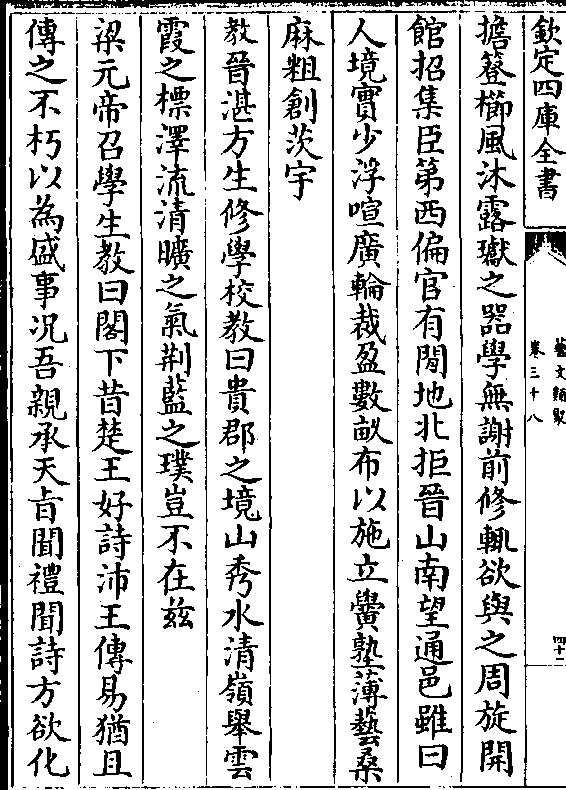 欽定四庫全書
藝文類聚
卷三十八
四十二
擔簦櫛風沐露瓛之器學無謝前修輒欲與之周旋開
館招集臣第西偏官有閒地北拒晉山南望通邑雖曰
人境實少浮喧廣輪裁盈數畝布以施立黌塾薄藝桑
麻粗創茨宇
教晉湛方生修學校教曰貴郡之境山秀水清嶺舉雲
霞之標澤流清曠之氣荆藍之璞豈不在兹
梁元帝召學生教曰閣下昔楚王好詩沛王傳易猶且
傳之不朽以為盛事況吾親承天旨聞禮聞詩方欲化